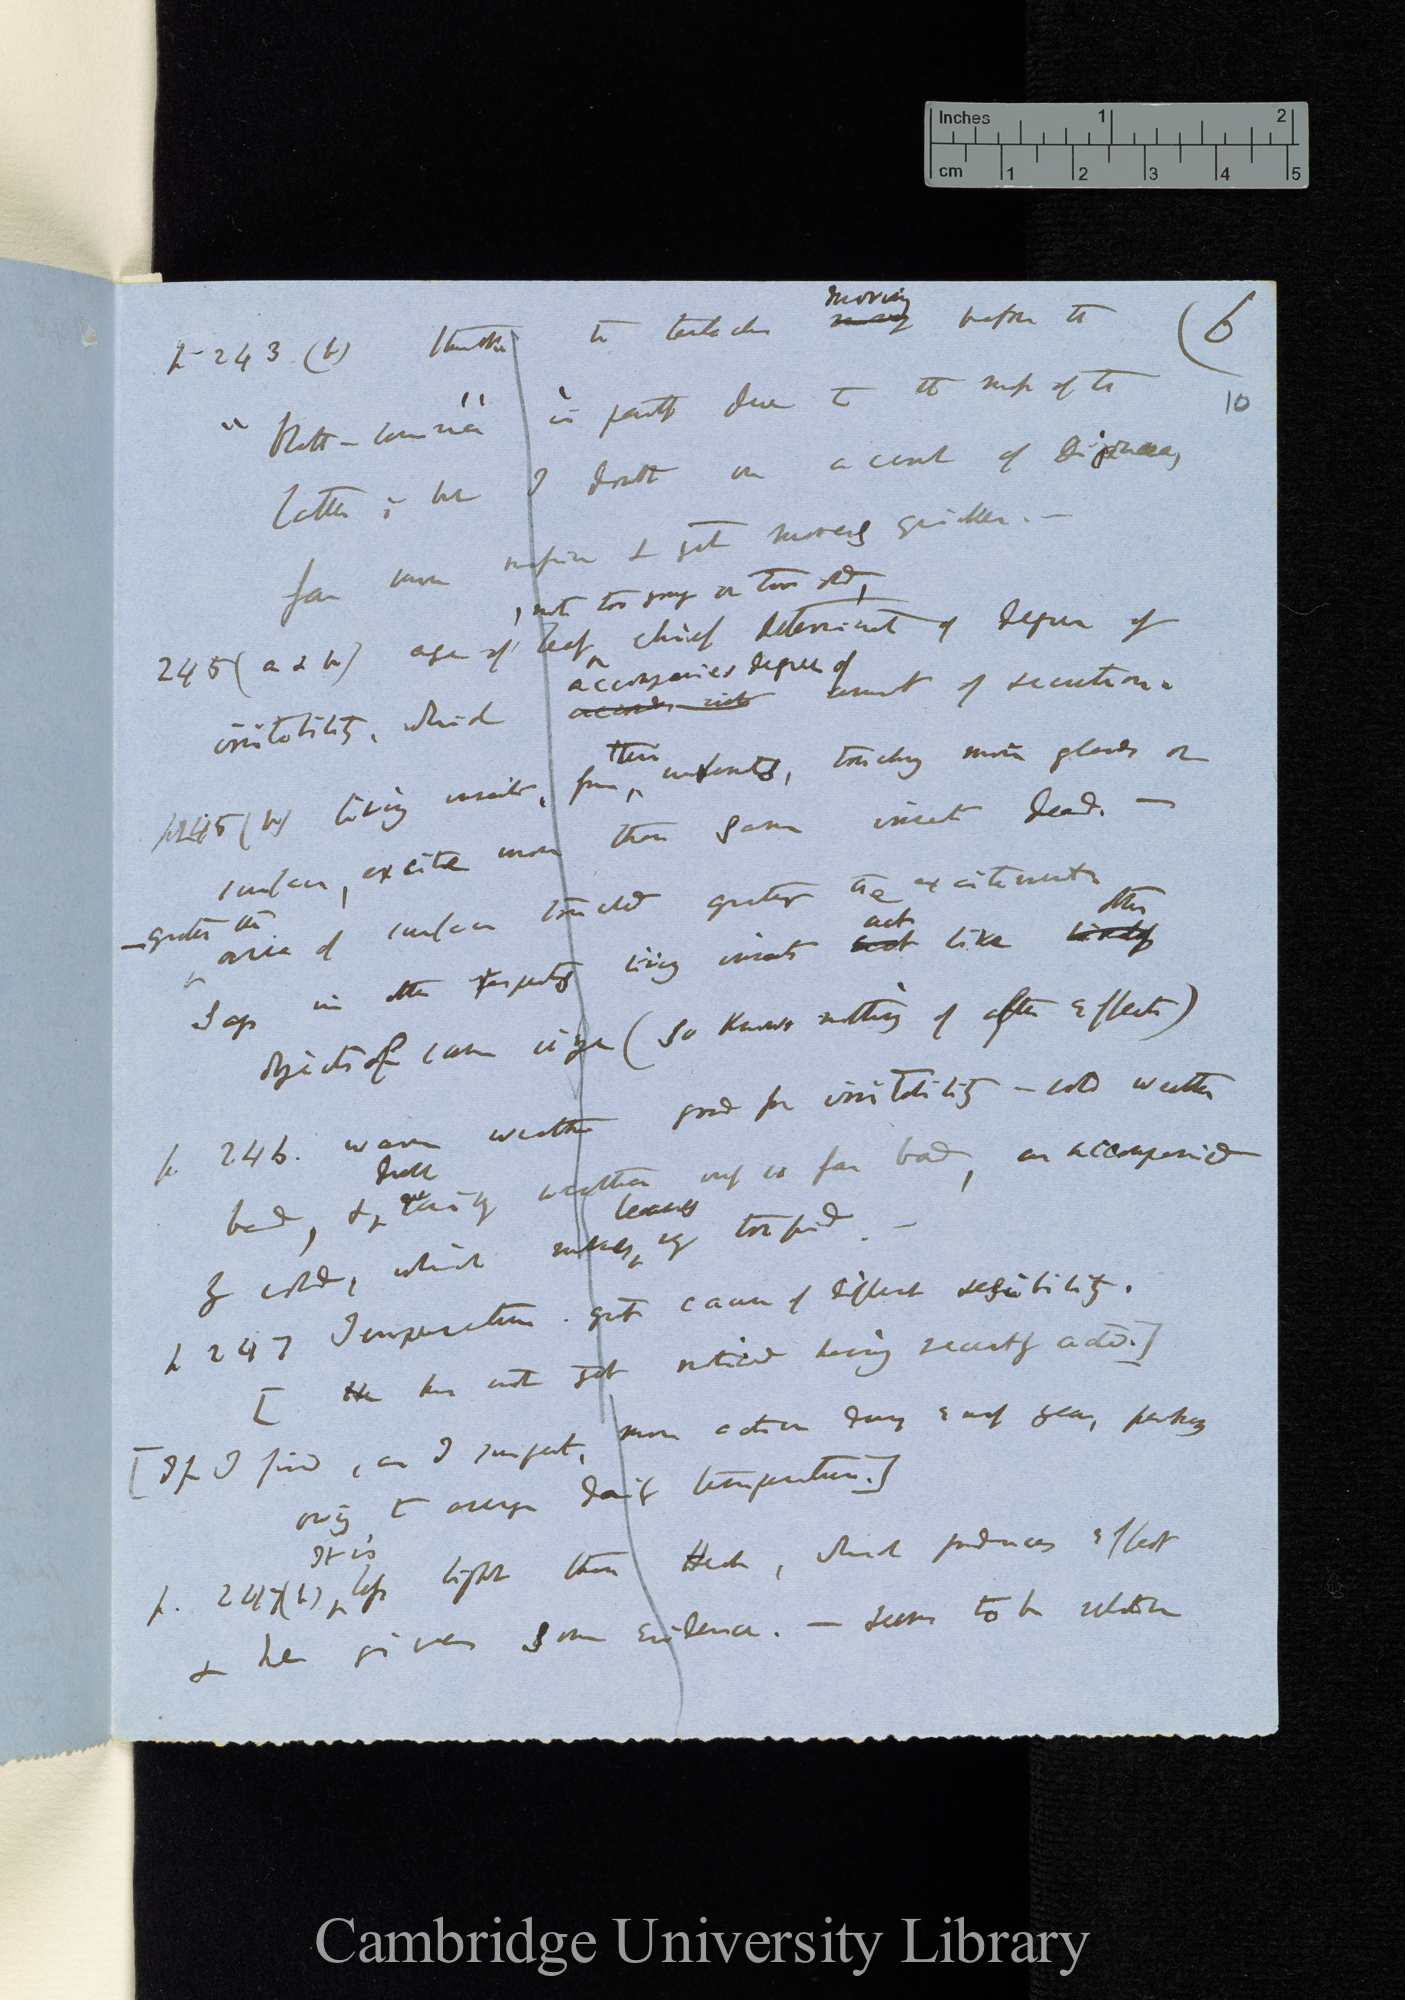 Inches 1 2
cm 1 2 3 4 5
(6
10
p 243 (b) thinks the tentacles moving before the
"Blatt-lamina" is partly due to the
latter; but I doubt on account of Dionaea,
far more & yet moves quicker. —
, not too young or too old,
245 (a & b) age of leaf chief determinant of degree of
accompanies degree of
irritability, which amount of secretion.
their
p 245 (b) living insects, from movements, touching more glands or
surface, excite more than same insect dead. —
— greater the
area of surface touched greater the excitement
act other
Says in other respects living insects like
objects of same size (so knows nothing of after effects)
p 246. warm weather good for irritability — cold weather
dull
bad, & rainy weather only so far bad, as accompanied
leaves
by cold, which makes torpid. —
p 247 Temperature great cause of different sensibility.
[ He has not yet noticed having recently acted.]
[If I find, as I suspect, more action during end of year, perhaps
owing to average daily temperature.]
It is
p. 247(b) less light than Heat, which produces effect
& he gives some evidence. — seems to be relation
Cambridge University Library